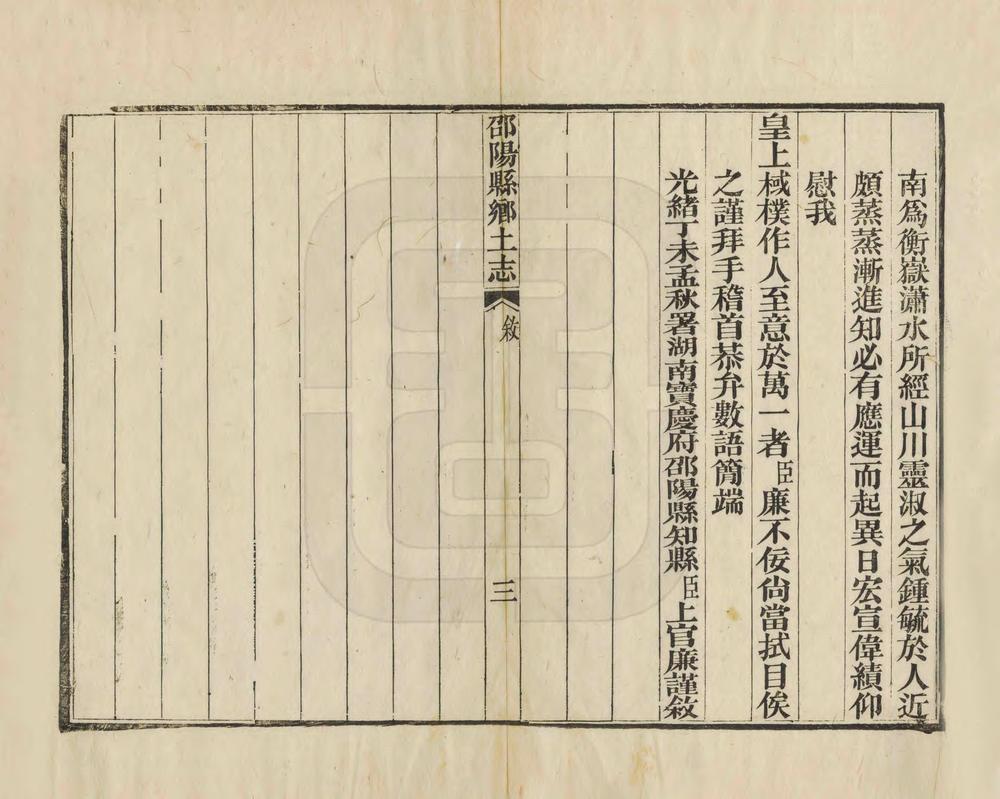 南爲衡嶽瀟水所經山川靈淑之氣鍾毓於人近
頗蒸蒸漸進知必有應運而起異日宏宣偉績仰
慰我
皇上棫樸作人至意於萬一者臣廉不佞尙當拭目俟
之謹拜手稽首恭弁數語簡端
光緒丁未孟秋署湖南寶慶府邵陽縣知縣臣上官廉謹敘
邵陽縣鄉土志
敘
三